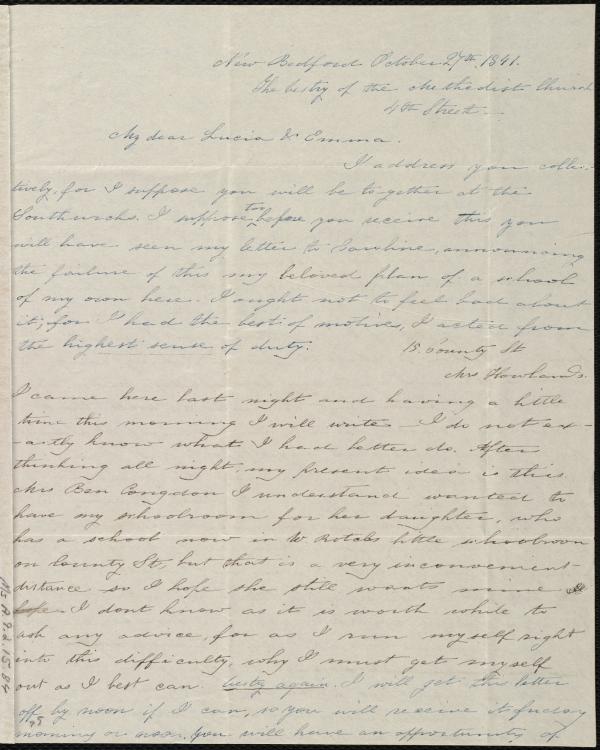 New Bedford October 27th, 1841.
The vestry of the Methodist Church
4th Street.
My dear Lucia & Emma.
I address you collec-
tively, for I suppose you will be together at the
Southwicks. I suppose too before you receive this you
will have seen my letter to Caroline, announcing
the failure of this my beloved plan of a school
of my own here. I ought not to feel bad about
it, for I had the best of motives, I acted from
the highest sense of duty.
15 County St
Mrs Howlands.
I came here last night and having a little
time this morning I will write. I do not ex-
-actly know what I had better do. After
thinking all night my present idea is this.
Mrs Ben Congdon I understand wanted to
have my schoolroom for her daughter, who
has a school now in W Rotchs little schoolroom
on County St, but that is a very inconvenient
distance so I hope she still wants mine
I dont know as it is worth while to
ask any advice, for as I run myself right
into this difficulty, why I must get myself
out as I best can. Vestry again. I will get this letter
off by noon if I can, so you will receive it friday
morning or noon. You will have an opportunity of
Ms. A.9.2.15.84